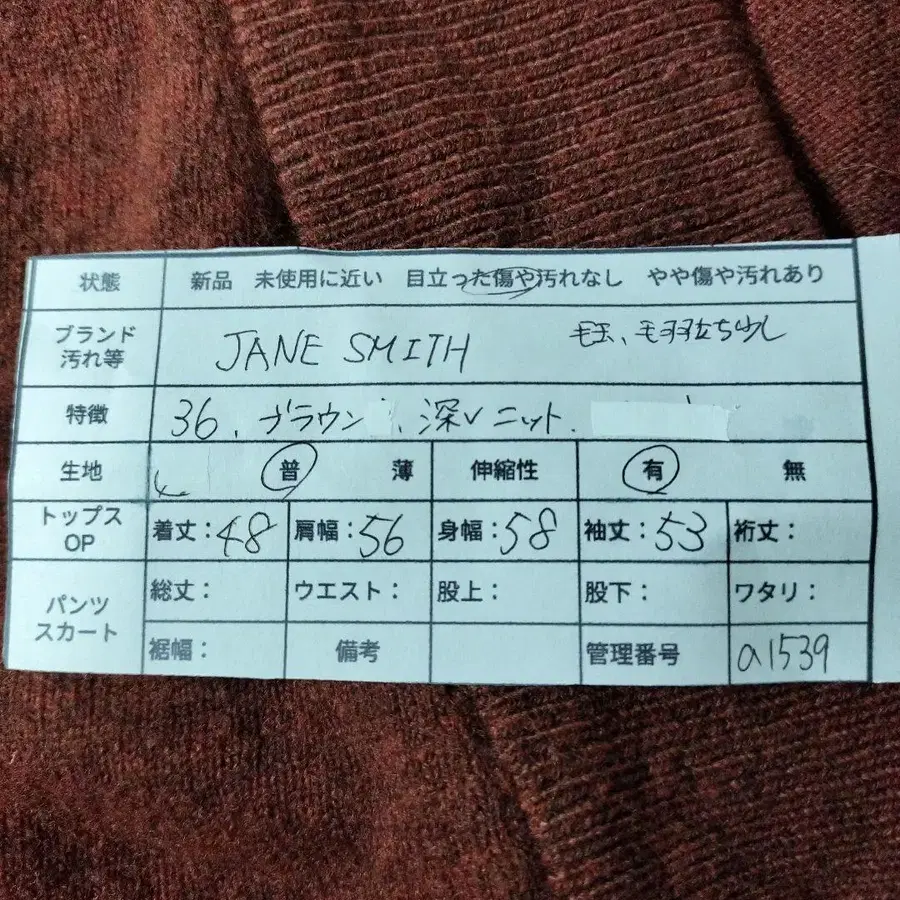 状態 新品 未使用に近い 目立った傷や汚れなし やや傷や汚れあり
ブランド 汚れ等 JANE SMITH 毛玉、毛羽立ち少し
特徴 36、ブラウン、深Vニット
生地 普 薄 伸縮性 有 無
トップス OP 着丈：48 肩幅：56 身幅：58 袖丈：53 裄丈：
パンツ スカート 総丈： ウエスト： 股上： 股下： ワタリ：
裾幅： 備考 管理番号 a1539